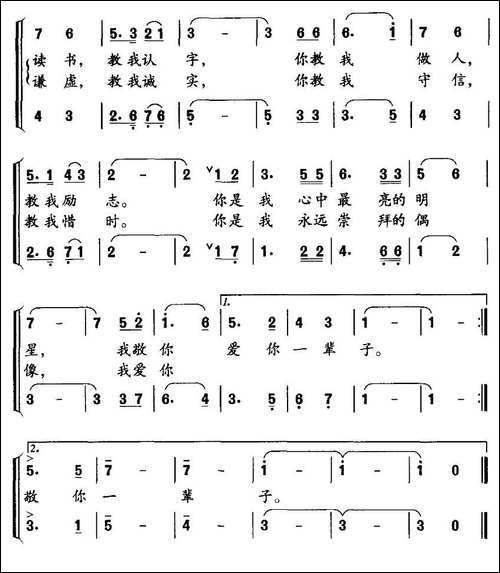 7 6 | 5. 3 2 1 | 3 - | 3 6 6 | 6. i | 7 6 |
读 书, 教 我 认 字, 你 教 我 做 人,
谦 虚, 教 我 诚 实, 你 教 我 守 信,
4 3 | 2. 6 7 6 | 5 - | 5 3 3 | 3. 5 | 4 3 |
5. 1 4 3 | 2 - | 2 V 1 2 | 3. 5 5 | 6. 3 3 | 5 6 |
教 我 励 志。 你 是 我 心 中 最 亮 的 明
教 我 惜 时。 你 是 我 永 远 崇 拜 的 偶
2. 6 7 1 | 2 - | 2 V 1 7 | 1. 2 2 | 4. 6 6 | 1 2 |
1.
7 - | 7 5 2 | i. 6 | 5. 2 | 4 3 | 1 - | 1 - :|
星, 我 敬 你 爱 你 一 辈 子。
像, 我 爱 你
3 - | 3 3 7 | 6. 4 | 3. 5 | 6 7 | 1 - | 1 - :|
2.
> 5. 5 | 7 - | 7 - | i - | i - | i 0 |
敬 你 一 辈 子。
> 3. 1 | 5 - | 4 - | 3 - | 3 - | 3 0 |